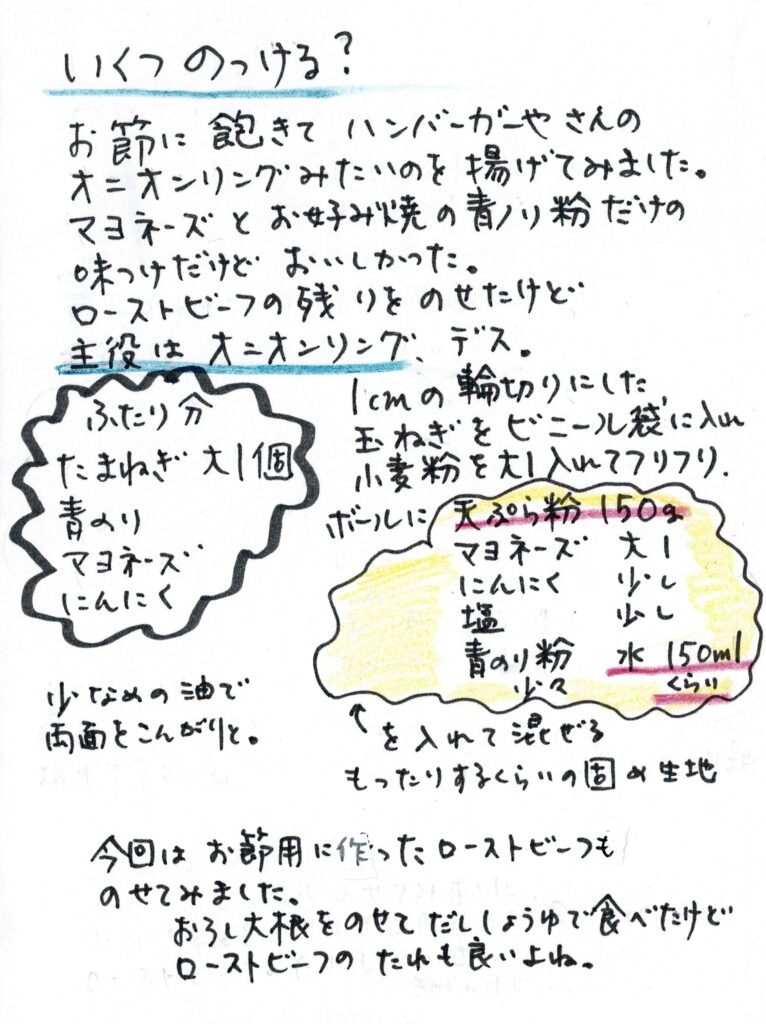 いくつ のっける?
お節に 飽きて ハンバーガーや さんの
オニオンリングみたいのを 揚げてみました。
マヨネーズ と お好み焼の青ノリ粉だけの
味つけだけど おいしかった。
ローストビーフの残りを のせたけど
主役は オニオンリング、デス。
ふたり分
たまねぎ 大1個
青のり
マヨネーズ
にんにく
1cmの輪切りにした
玉ねぎを ビニール袋に入れ
小麦粉を大1入れてフリフリ.
ボールに 天ぷら粉 150g
マヨネーズ 大1
にんにく 少し
塩 少し
青のり粉 水 150ml
少々 くらい
↑を 入れて 混ぜる
もったりするくらいの固め生地
少なめの油で
両面をこんがりと。
今回は お節用に作ったローストビーフも
のせてみました。
おろし大根をのせてだししょうゆで食べたけど
ローストビーフの たれも良いよね。